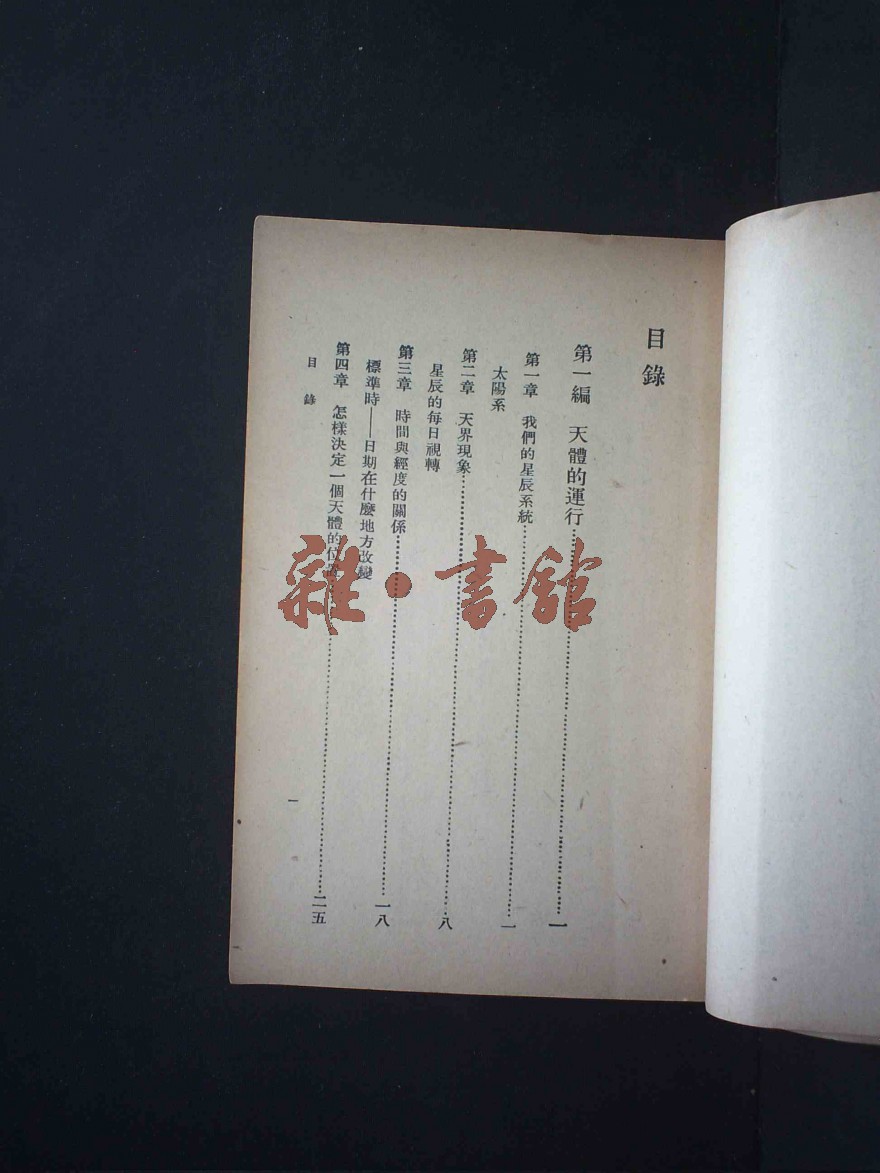 目錄
第一編　天體的運行……一
第一章　我們的星辰系統……一
太陽系
第二章　天界現象……八
星辰的每日視轉
第三章　時間與經度的關係……一八
標準時——日期在什麼地方改變
第四章　怎樣決定一個天體的位置……二五
目錄
一
雜·書館